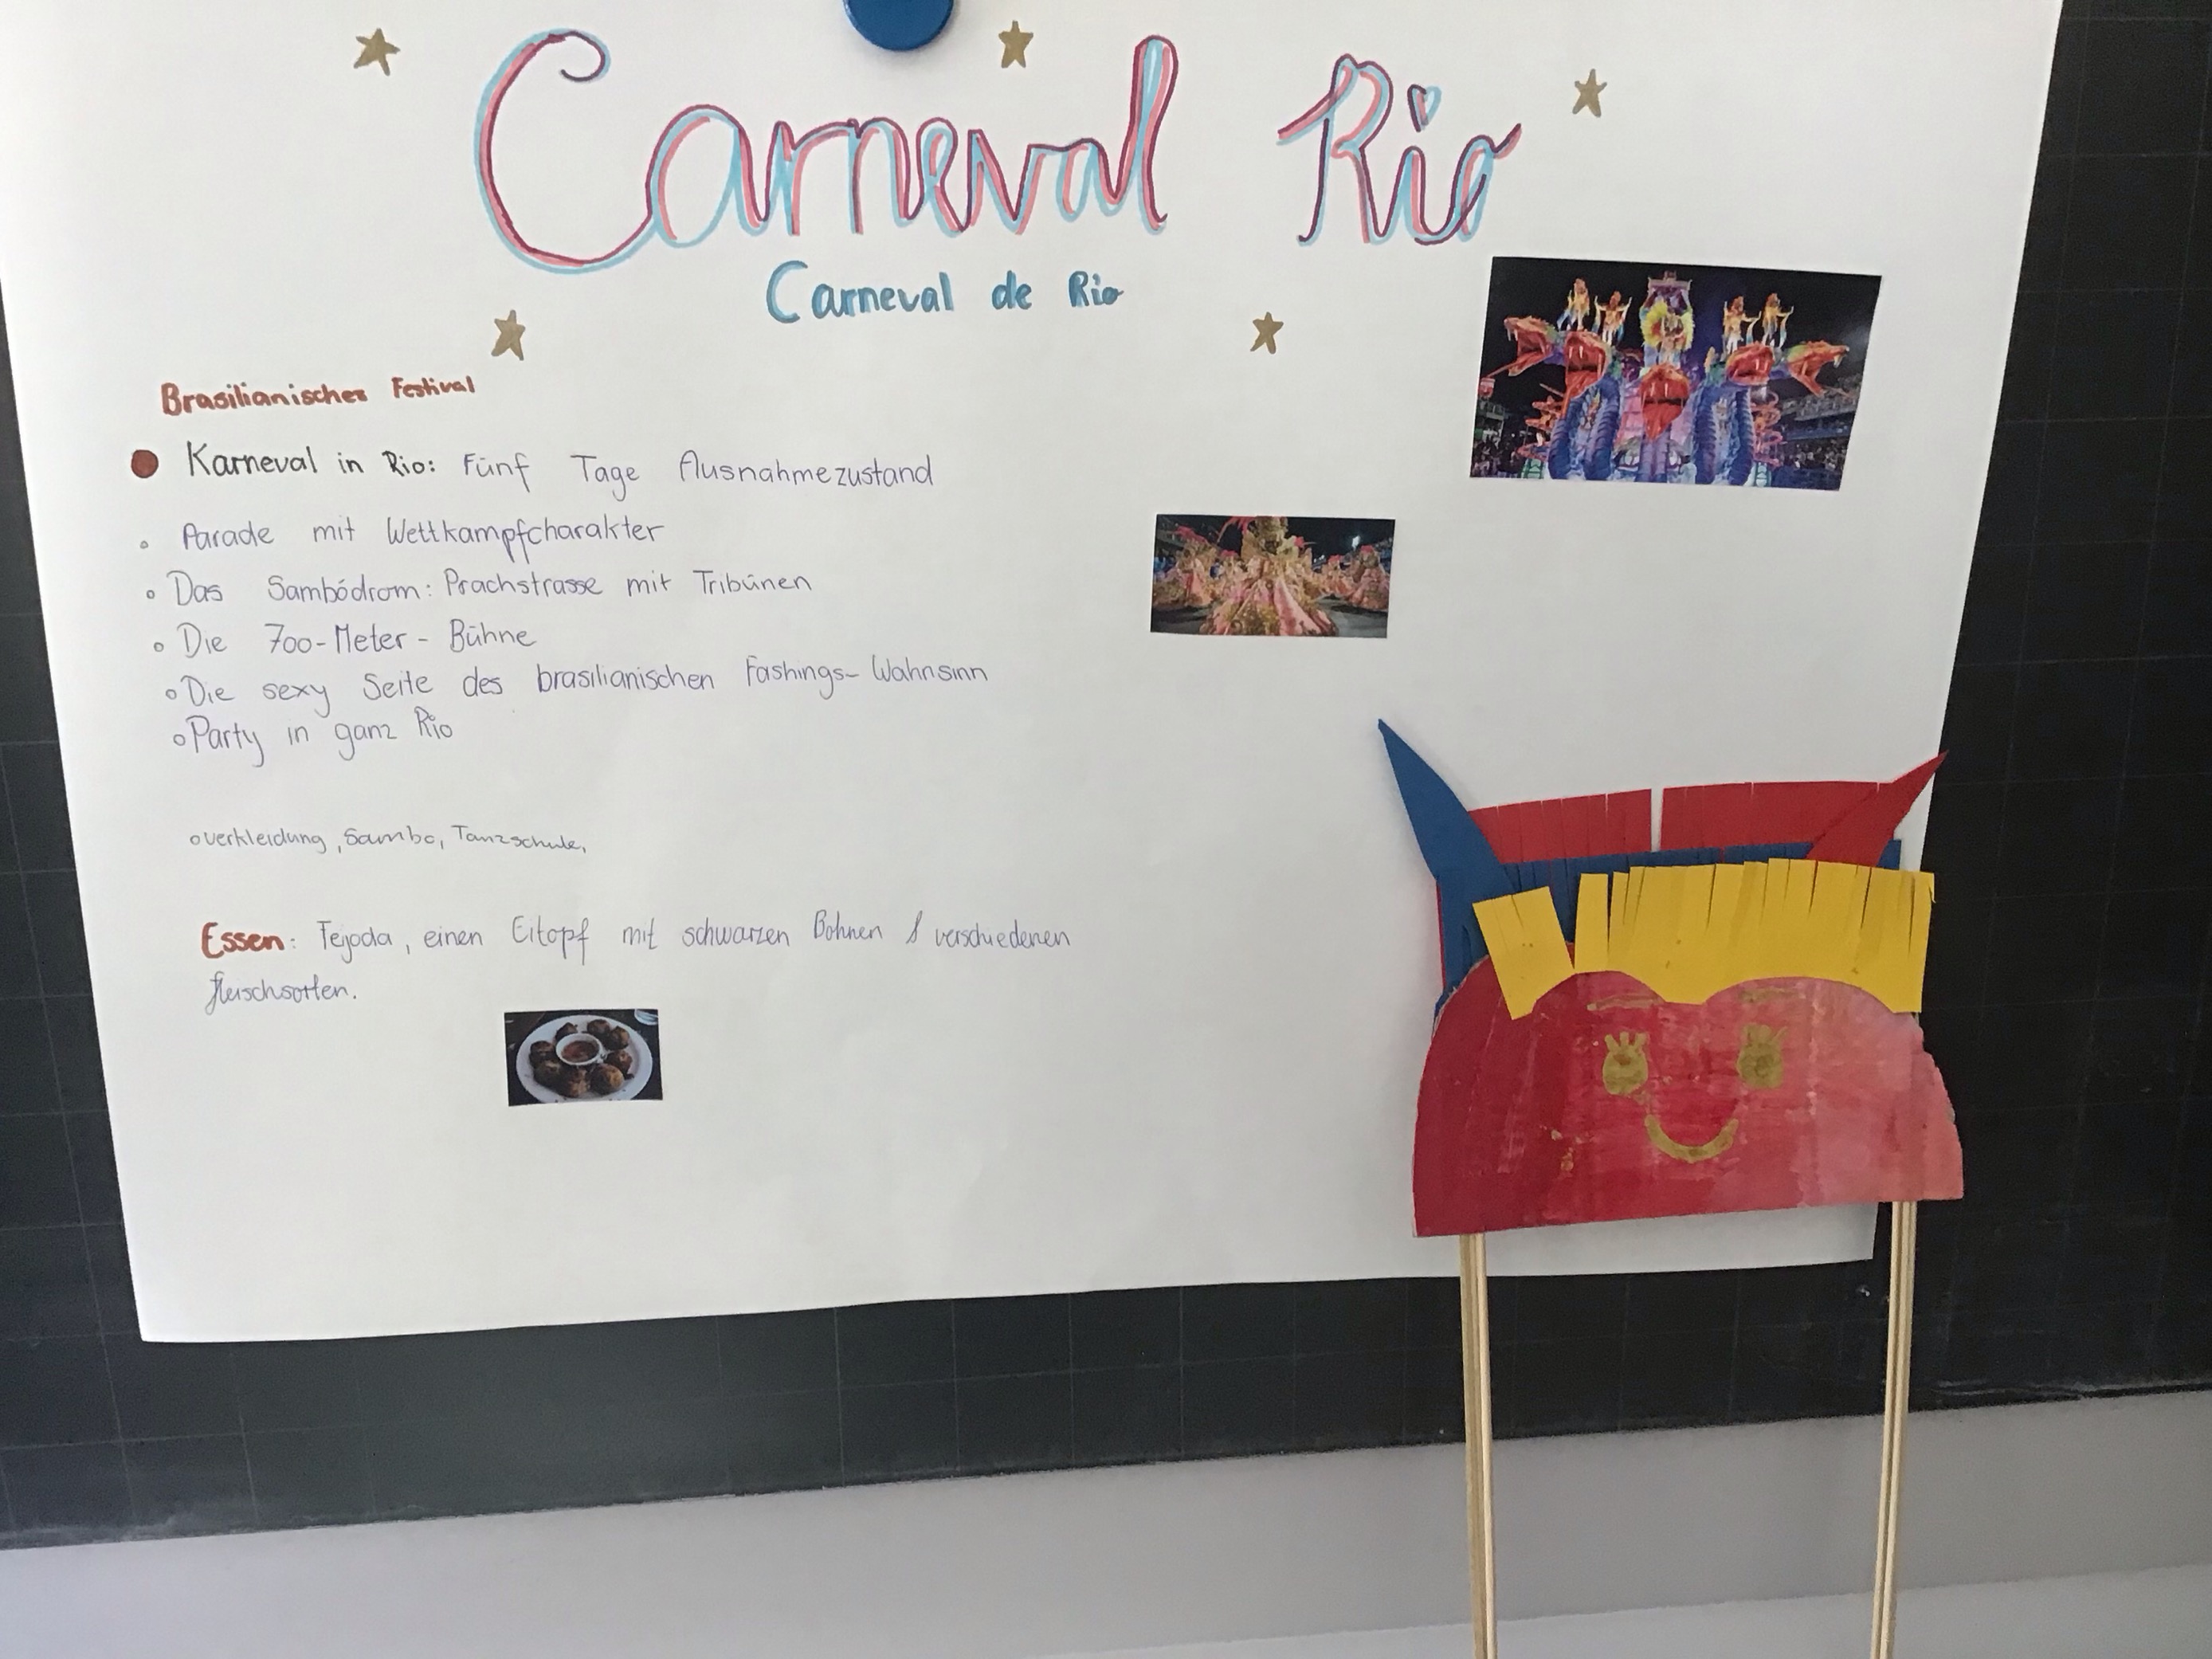 Carneval Rio
Carneval de Rio
Brasilianisches Festival
Karneval in Rio: Fünf Tage Ausnahmezustand
Parade mit Wettkampfcharakter
Das Sambódrom: Prachstrasse mit Tribünen
Die 700-Meter-Bühne
Die sexy Seite des brasilianischen Fashings-Wahnsinn
Party in ganz Rio
verkleidung, Sambo, Tanzschule,
Essen: Fejoda, einen Eitopf mit schwarzen Bohnen & verschiedenen
fleischsorten.